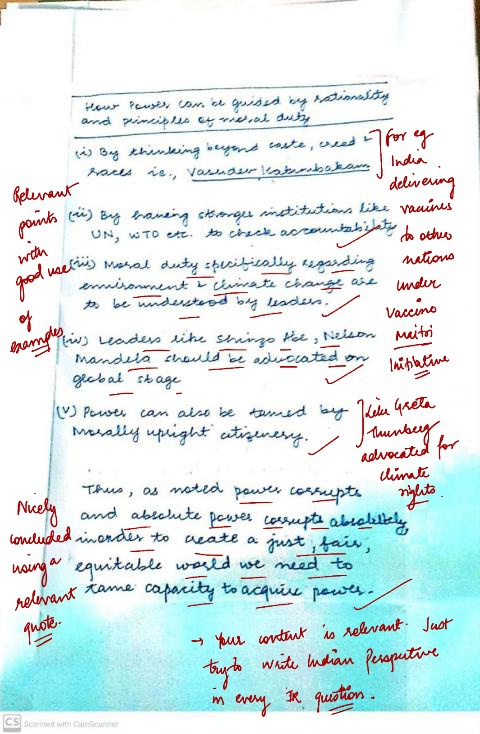 How Power can be guided by rationality
and principles of moral duty
(i) By thinking beyond caste, creed &
races i.e., Vasudev Katumbakam
(ii) By having stronger institutions like
UN, WTO etc. to check accountability
(iii) Moral duty specifically regarding
environment & climate change are
to be understood by leaders.
(iv) Leaders like Shinzo Abe, Nelson
Mandela should be advocated on
global stage
(v) Power can also be tamed by
Morally upright citizenery.
Thus, as noted power corrupts
and absolute power corrupts absolutely
inorder to create a just, fair,
equitable world we need to
tame capacity to acquire power.
For eg
India
delivering
vaccines
to other
nations
under
Vaccino
Maitri
Initiative
Like Greta
Thunberg
advocated for
climate
rights.
Relevant
points
with
good use
of
examples
Nicely
concluded
using a
relevant
quote.
→ Your content is relevant. Just
try to write Indian Perspective
in every IR question.
CS Scanned with CamScanner